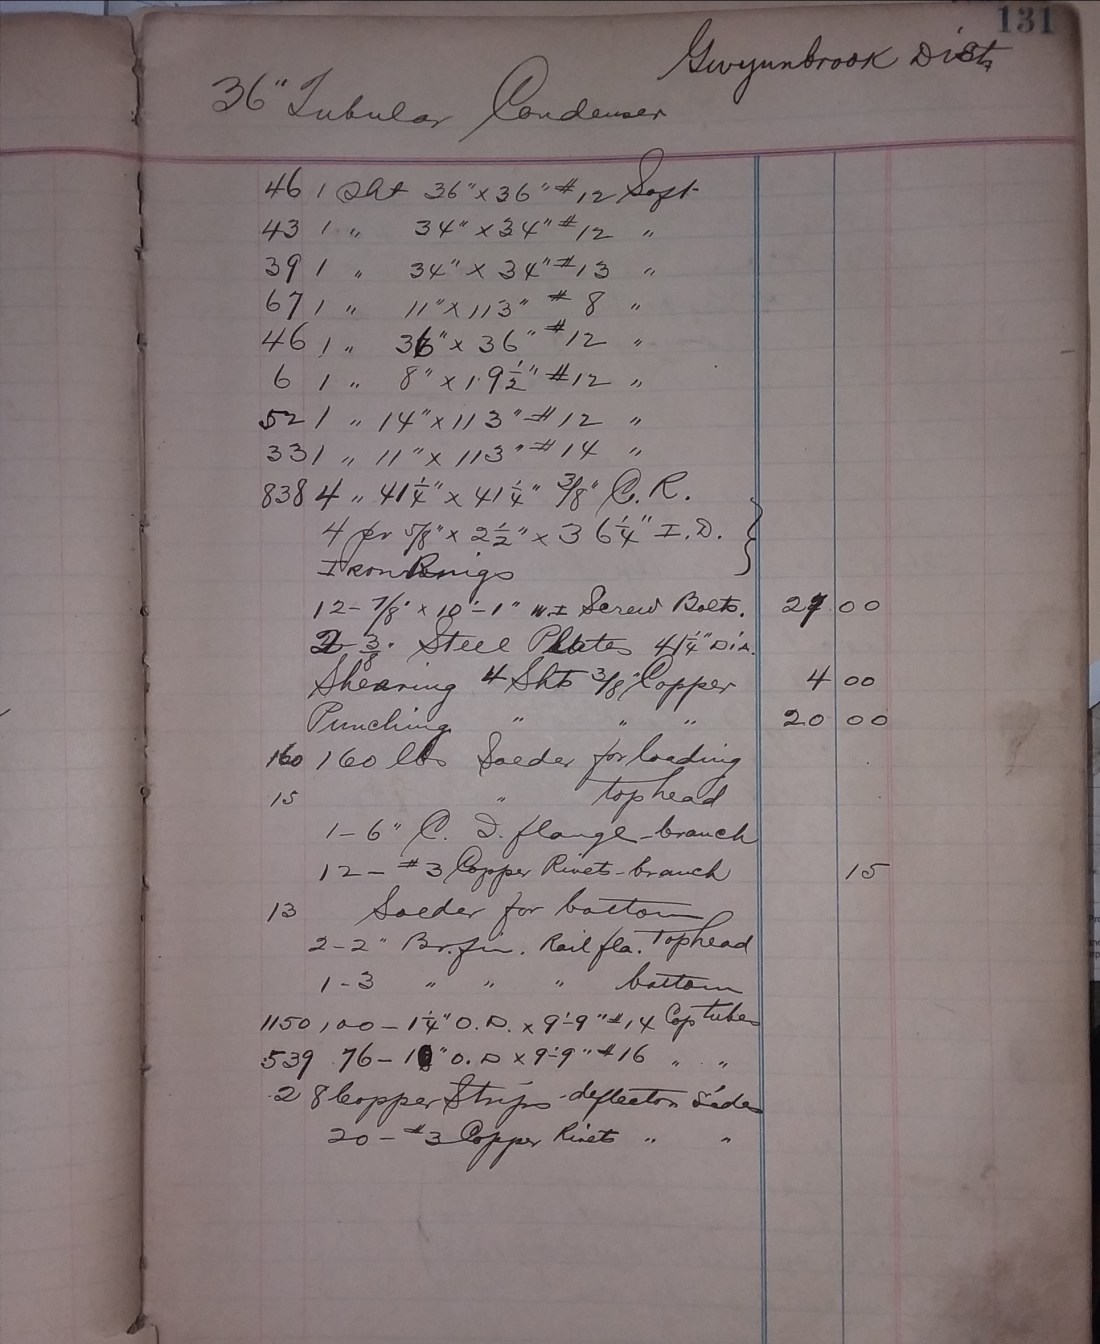 131
Gwynnbrook Dist.
36" Tubular Condenser
46 1 Sht 36" x 36" #12 Soft
43 1 " 34" x 34" #12 "
39 1 " 34" x 34" #13 "
67 1 " 11" x 113" # 8 "
46 1 " 36" x 36" #12 "
6 1 " 8" x 19½" #12 "
52 1 " 14" x 113" #12 "
33 1 " 11" x 113" #14 "
838 4 " 41¼" x 41¼" 3/8" C. R.
4 pr 5/8" x 2½" x 36¼" I.D.
Iron Rings
12 - 7/8" x 10'-1" W.I Screw Bolts. 27 00
2 3/8" Steel Plates 41¼" Dia.
Shearing 4 Shts 3/8" Copper 4 00
Punching " " " 20 00
160 160 lbs Soeder for loading
15 " tophead
1 - 6" C. I. flange - branch
12 - #3 Copper Rivets - branch 15
13 Soeder for bottom
2 - 2" Br. fin. Rail fla. Tophead
1 - 3 " " " bottom
1150 100 - 1¼" O.D. x 9'-9" #14 Cop tubes
539 76 - 1" O.D x 9'-9" #16 " "
28 Copper Strips - deflector sides
20 - #3 Copper Rivets " "